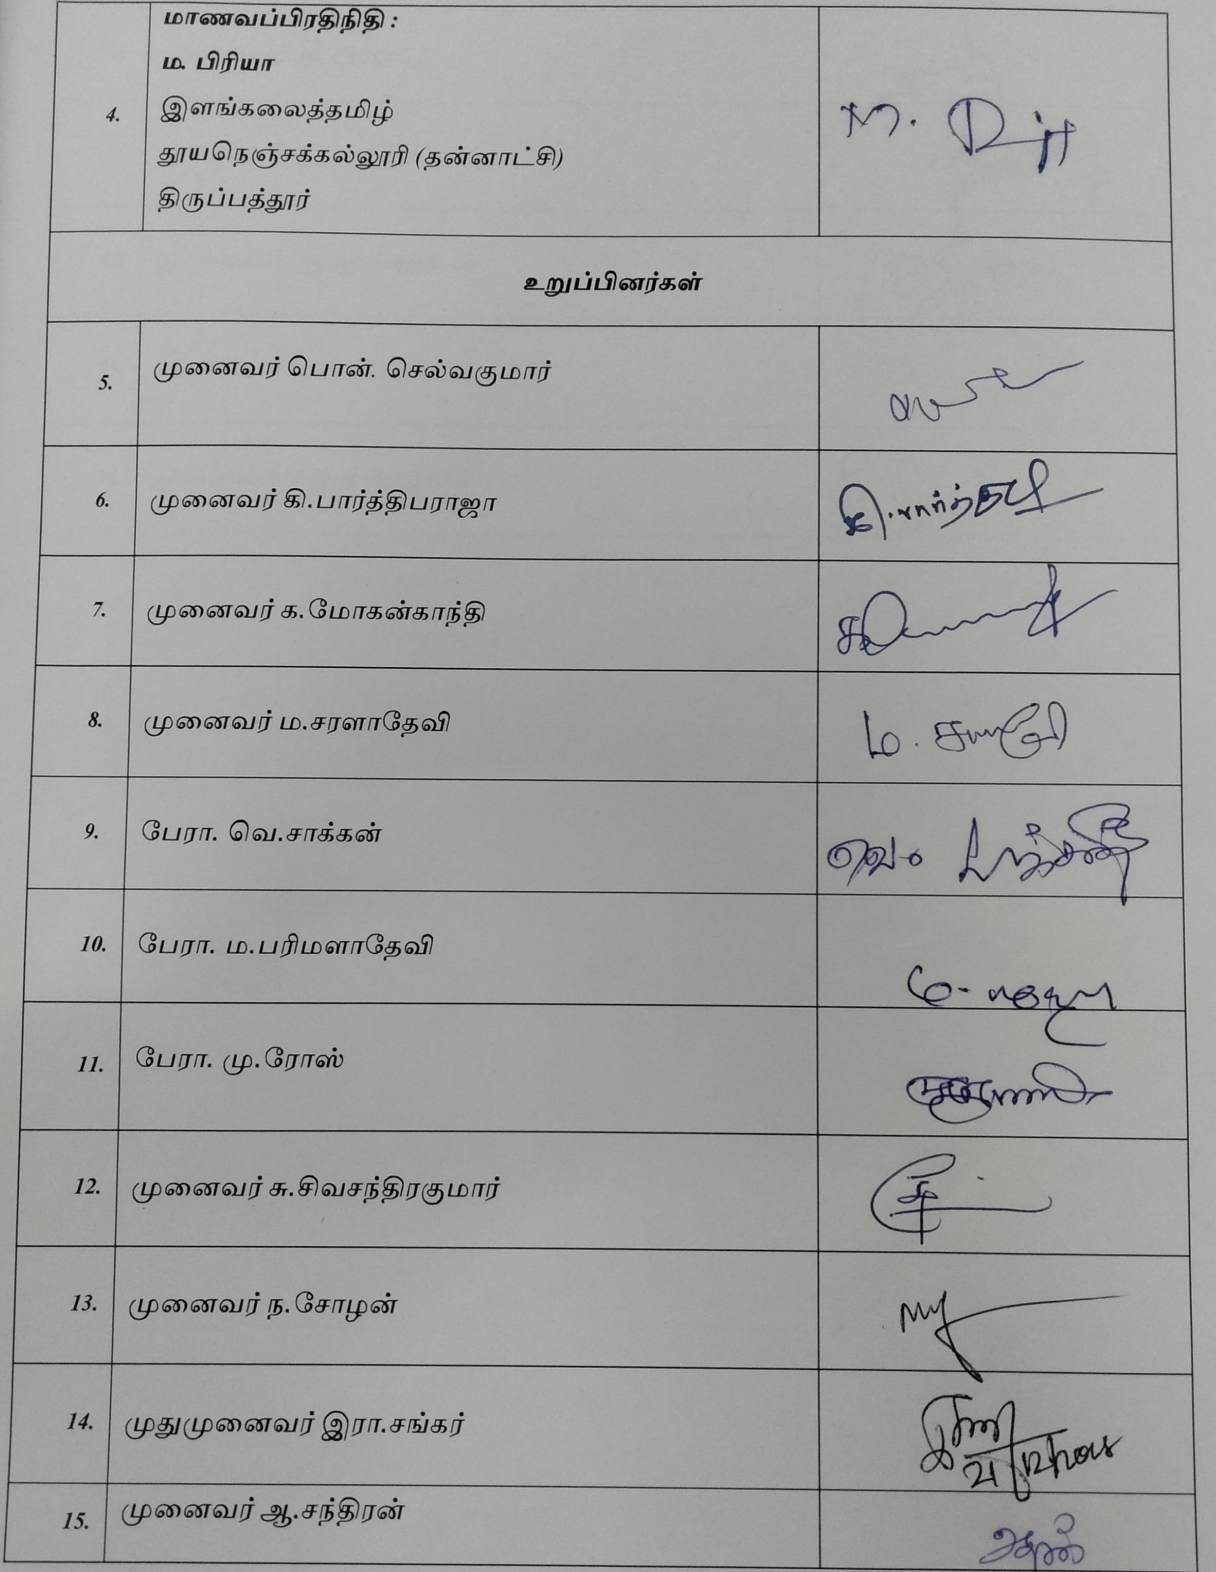 மாணவப்பிரதிநிதி :
ம. பிரியா
4.
இளங்கலைத்தமிழ்
தூயநெஞ்சக்கல்லூரி (தன்னாட்சி)
திருப்பத்தூர்
உறுப்பினர்கள்
5. முனைவர் பொன். செல்வகுமார்
6. முனைவர் கி.பார்த்திபராஜா
7. முனைவர் க.மோகன்காந்தி
8. முனைவர் ம.சரளாதேவி
9. பேரா. வெ.சாக்கன்
10. பேரா. ம.பரிமளாதேவி
11. பேரா. மு.ரோஸ்
12. முனைவர் சு.சிவசந்திரகுமார்
13. முனைவர் ந.சோழன்
14. முதுமுனைவர் இரா.சங்கர்
15. முனைவர் ஆ.சந்திரன்